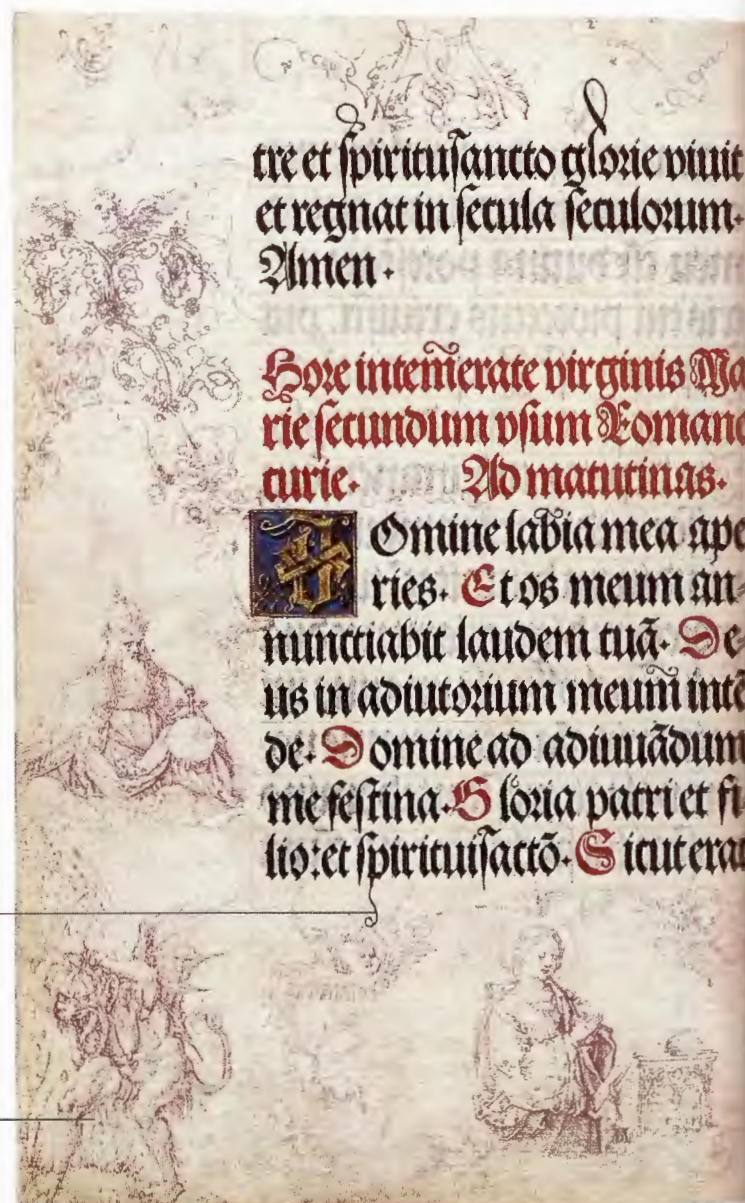 tre et ſpirituſancto glorie viuit
et regnat in ſecula ſeculorum.
Amen.
Hore intem̃erate virginis Ma
rie ſecundum vſum Romane
curie. Ad matutinas.
Domine labia mea ape
ries. Et os meum an-
nunctiabit laudem tuã. De
us in adiutorium meum̃ intẽ
de. Domine ad adiuuãdum
me feſtina. Gloria patri et fi
lio: et ſpirituiſactõ. Sicut erat